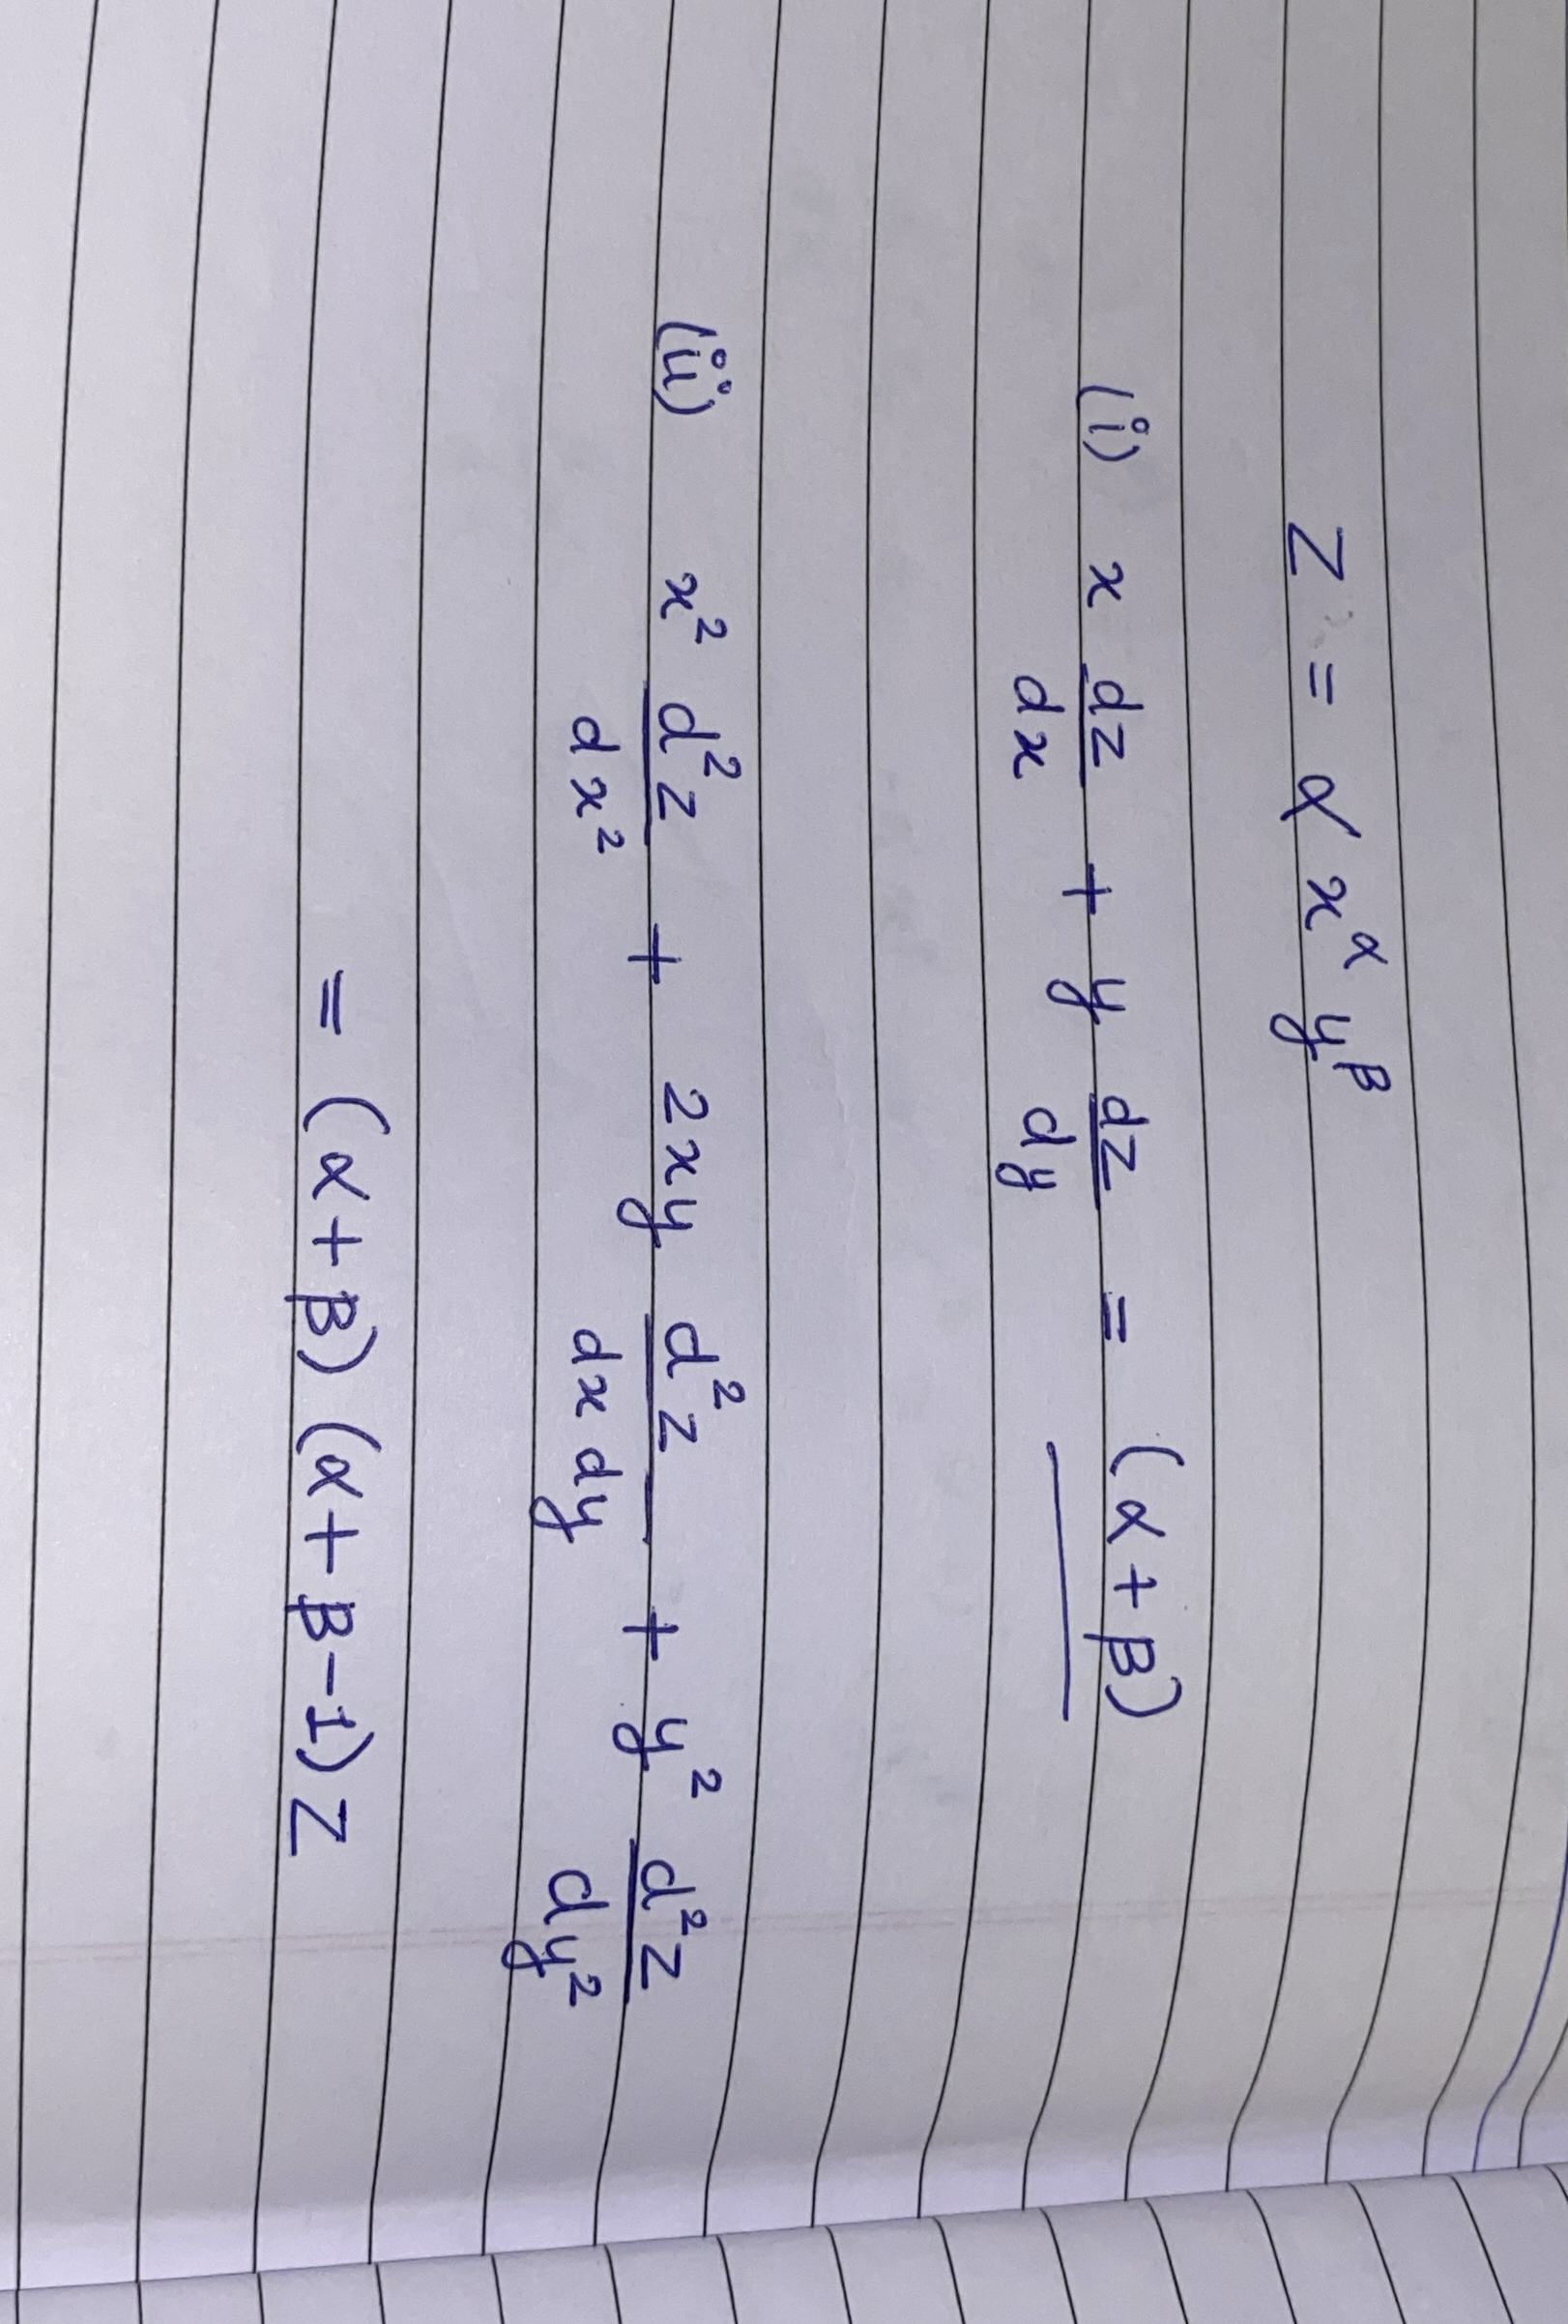 Z = α x^α y^β
(i) x dz/dx + y dz/dy = (α+β)
(ii) x² d²z/dx² + 2xy d²z/dx dy + y² d²z/dy²
= (α+β) (α+β-1) Z